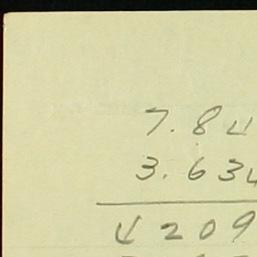 7.84
3.634
4209